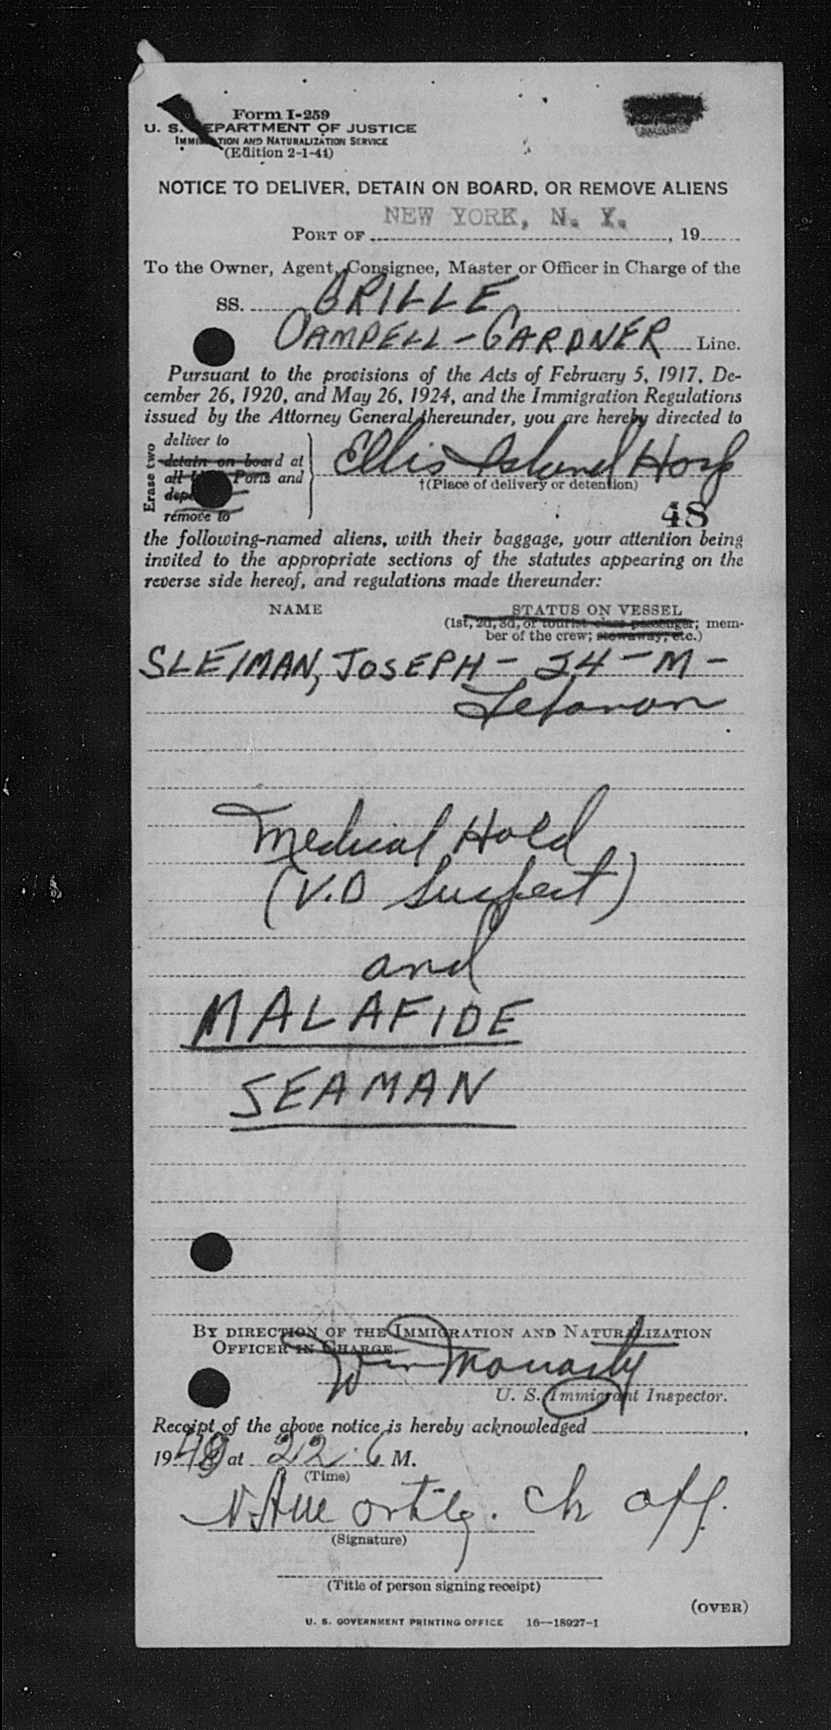 Form I-259
U. S. DEPARTMENT OF JUSTICE
IMMIGRATION AND NATURALIZATION SERVICE
(Edition 2-1-44)
NOTICE TO DELIVER, DETAIN ON BOARD, OR REMOVE ALIENS
PORT OF NEW YORK, N. Y. , 19
To the Owner, Agent, Consignee, Master or Officer in Charge of the
SS. GRILLE
CAMPELL-GARDNER Line.
Pursuant to the provisions of the Acts of February 5, 1917, De-
cember 26, 1920, and May 26, 1924, and the Immigration Regulations
issued by the Attorney General thereunder, you are hereby directed to
Erase two
deliver to
detain on board at
all Ports and
remove to
Ellis Island Hosp
†(Place of delivery or detention)
48
the following-named aliens, with their baggage, your attention being
invited to the appropriate sections of the statutes appearing on the
reverse side hereof, and regulations made thereunder:
NAME STATUS ON VESSEL
(1st, 2d, 3d, or tourist class passenger; mem-
ber of the crew; stowaway; etc.)
SLEIMAN, JOSEPH - 24 - M -
Lebanon
Medical Hold
(V.D Suspect)
and
MALAFIDE
SEAMAN
BY DIRECTION OF THE IMMIGRATION AND NATURALIZATION
OFFICER IN CHARGE.
Wm Moriarty
U. S. Immigrant Inspector.
Receipt of the above notice is hereby acknowledged ,
19 at M.
(Time)
ch off.
(Signature)
(Title of person signing receipt)
(OVER)
U. S. GOVERNMENT PRINTING OFFICE 16—18927-1